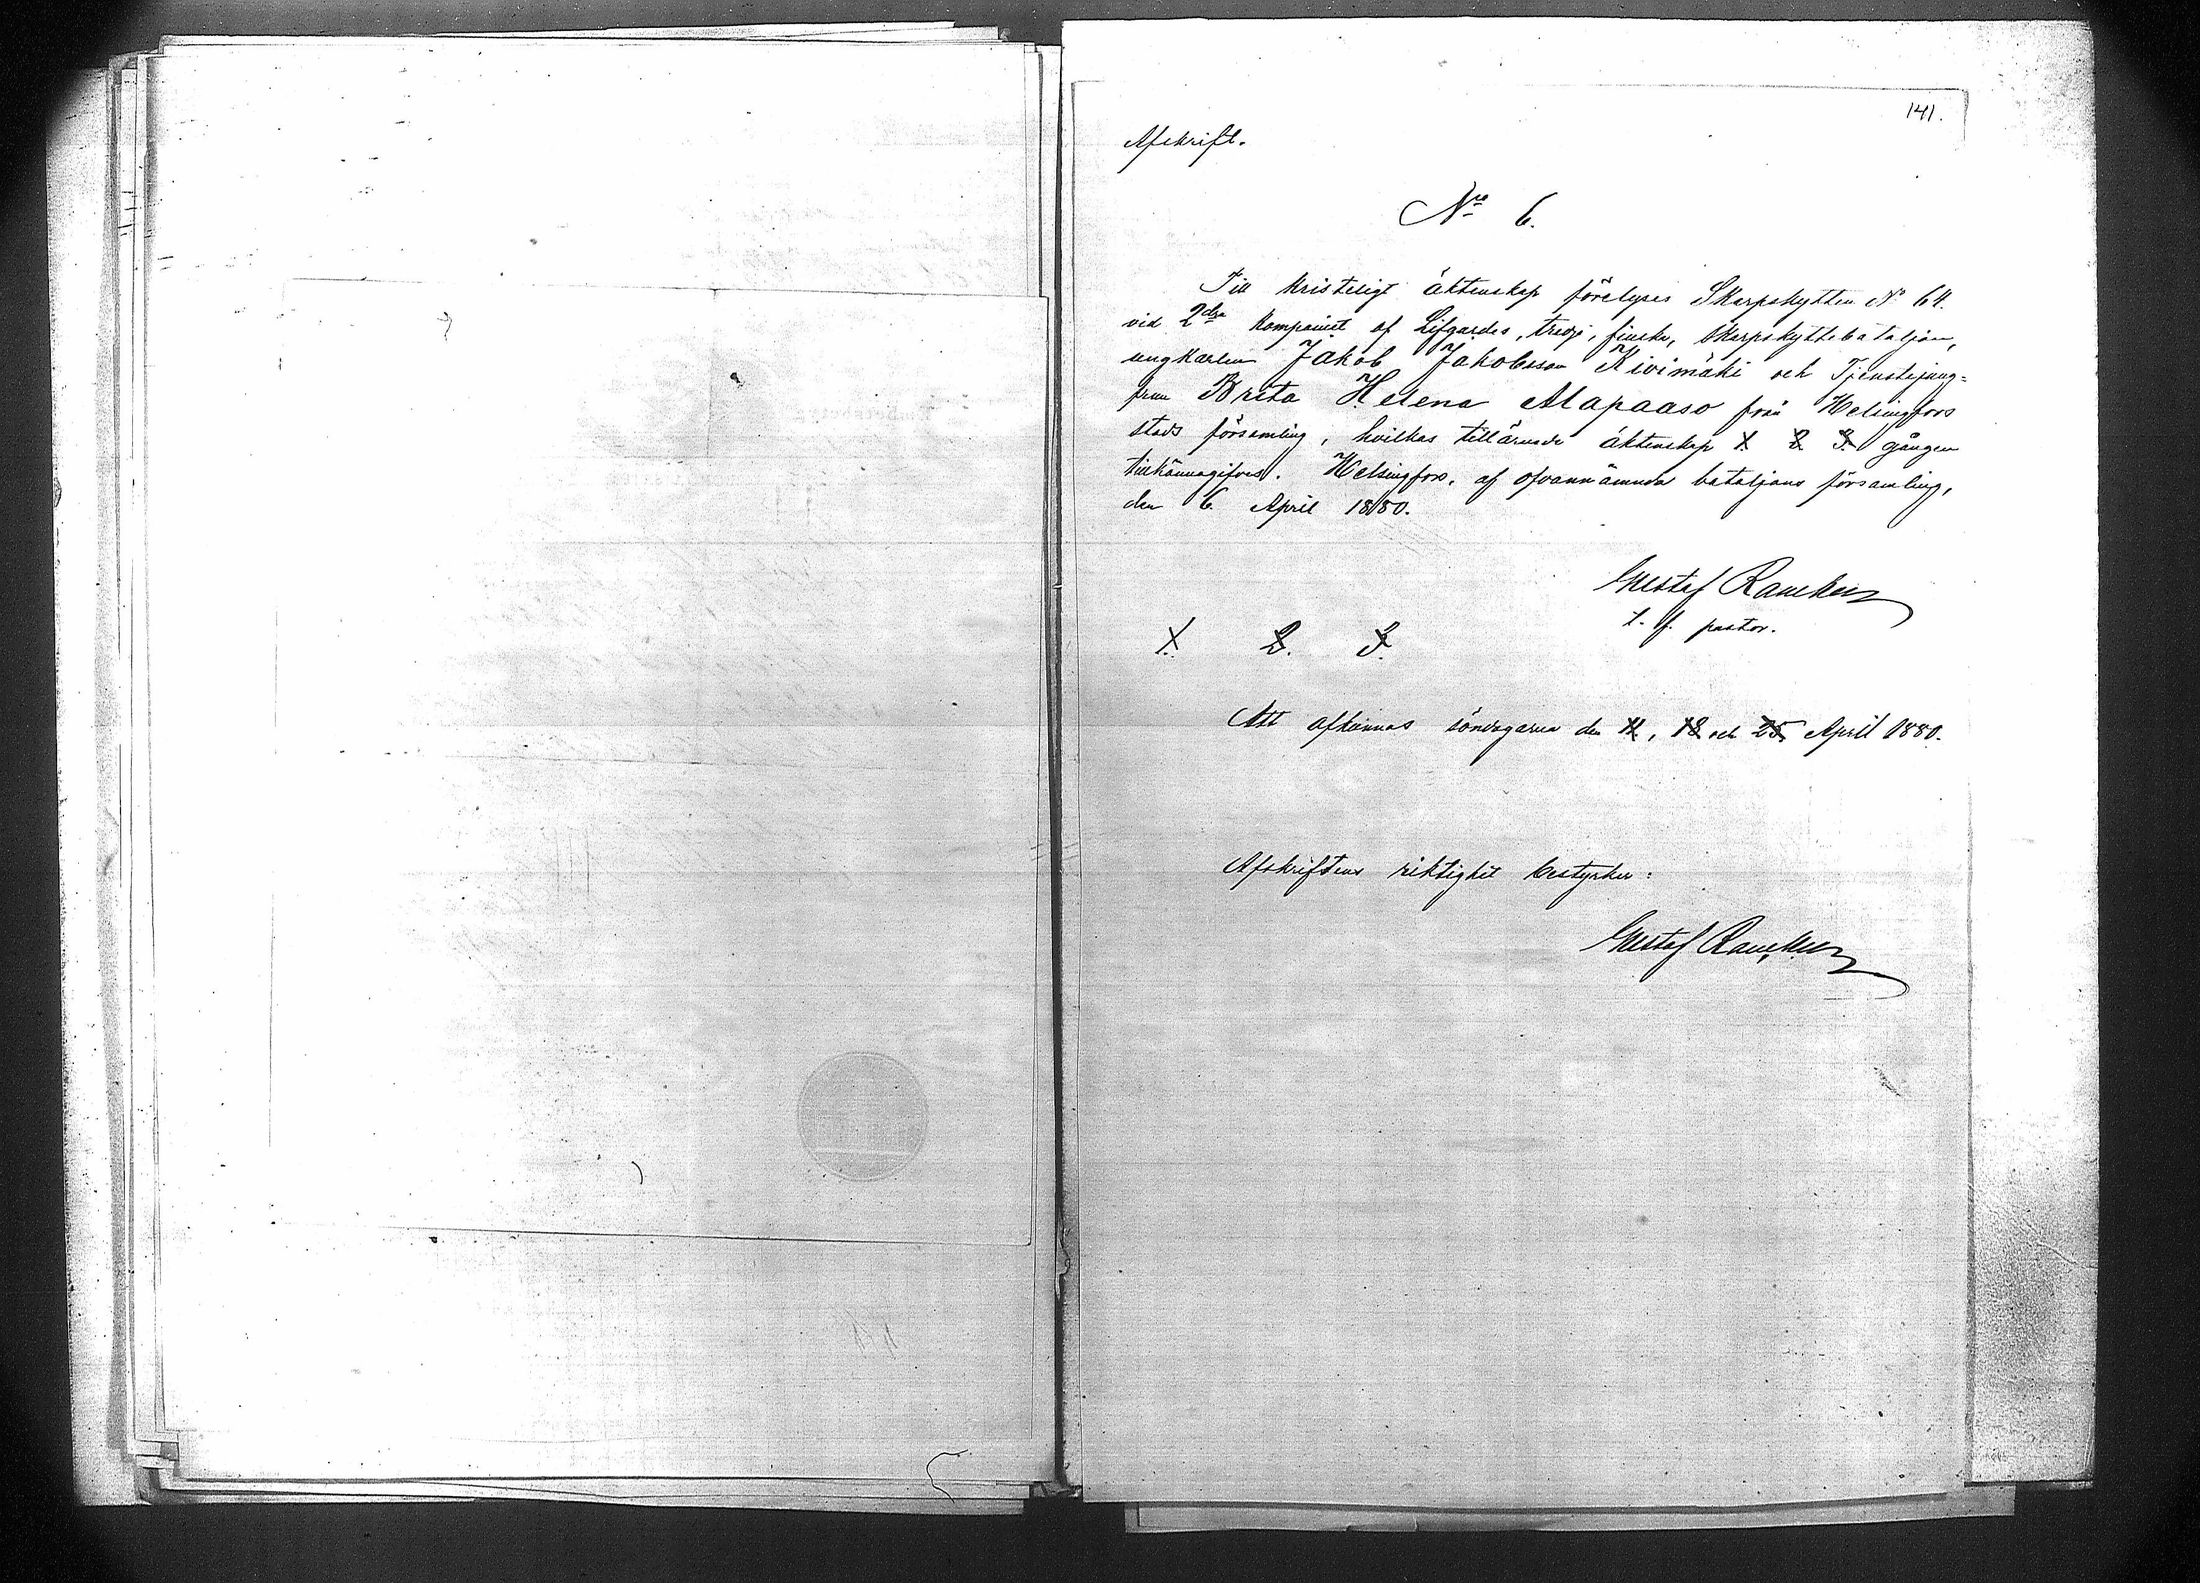 141.
Afskrift.
N<sup>ro</sup> 6.
Till kristeligt äktenskap förelyses Skarpskytten N° 64.
vid 2<sup>dra</sup> kompaniet af Lifgardes, tredje, finska, Skarpskyttebataljon,
ungkarlen Jakob Jakobsson Kivimäki och Tjenstejung=
frun Brita Helena Alapaaso från Helsingfors
stads församling, hvilkas tillärnade äktenskap 1. 2. 3. gången
tillkännagifves. Helsingfors, af ofvannämnda bataljons församling,
den 6 April 1880.
Gustaf Rancken
t. f. pastor.
1. 2. 3.
Att afkunnas söndagarna den 11, 18 och 25 April 1880.
Afskriftens riktighet bestyrker:
Gustaf Rancken